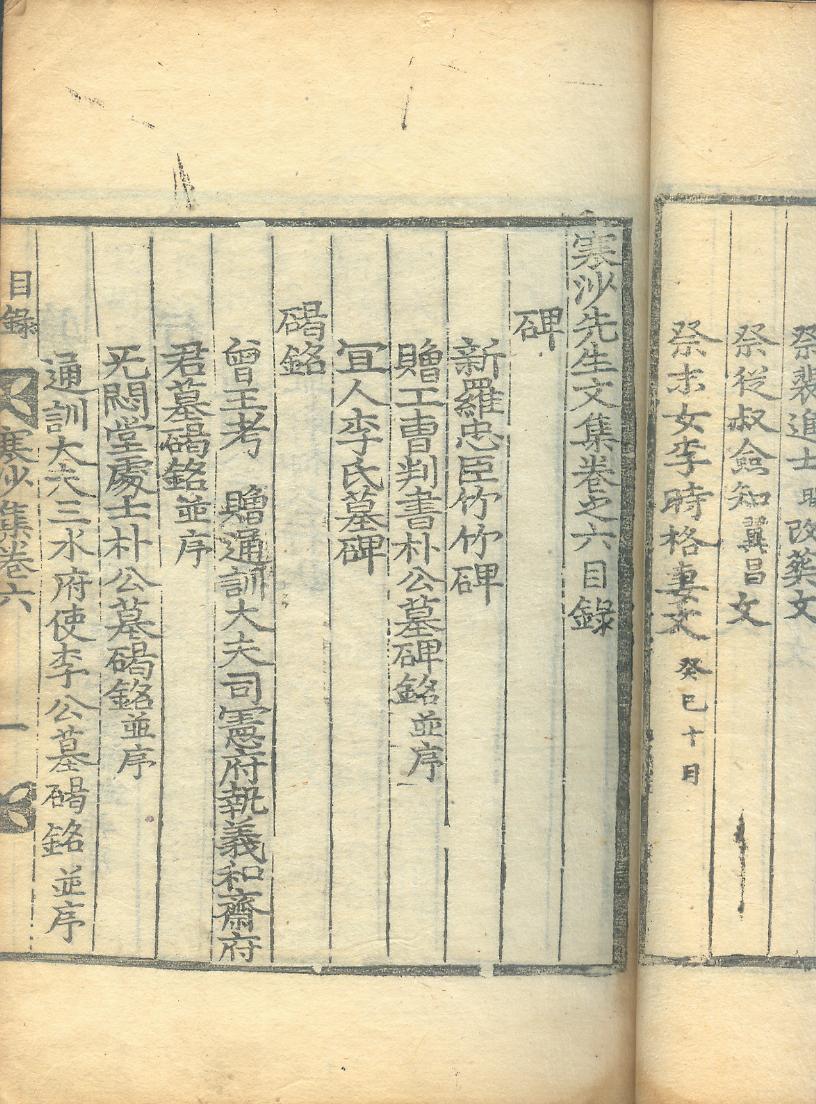 祭裴進士 改葬文
祭從叔僉知翼昌文
祭末女李時格妻文 癸巳十月
寒沙先生文集卷之六目錄
碑
新羅忠臣竹竹碑
贈工曹判書朴公墓碑銘並序
宜人李氏墓碑
碣銘
曾王考 贈通訓大夫司憲府執義和齋府
君墓碣銘並序
无悶堂處士朴公墓碣銘並序
通訓大夫三水府使李公墓碣銘並序
目錄 寒沙集卷六 一